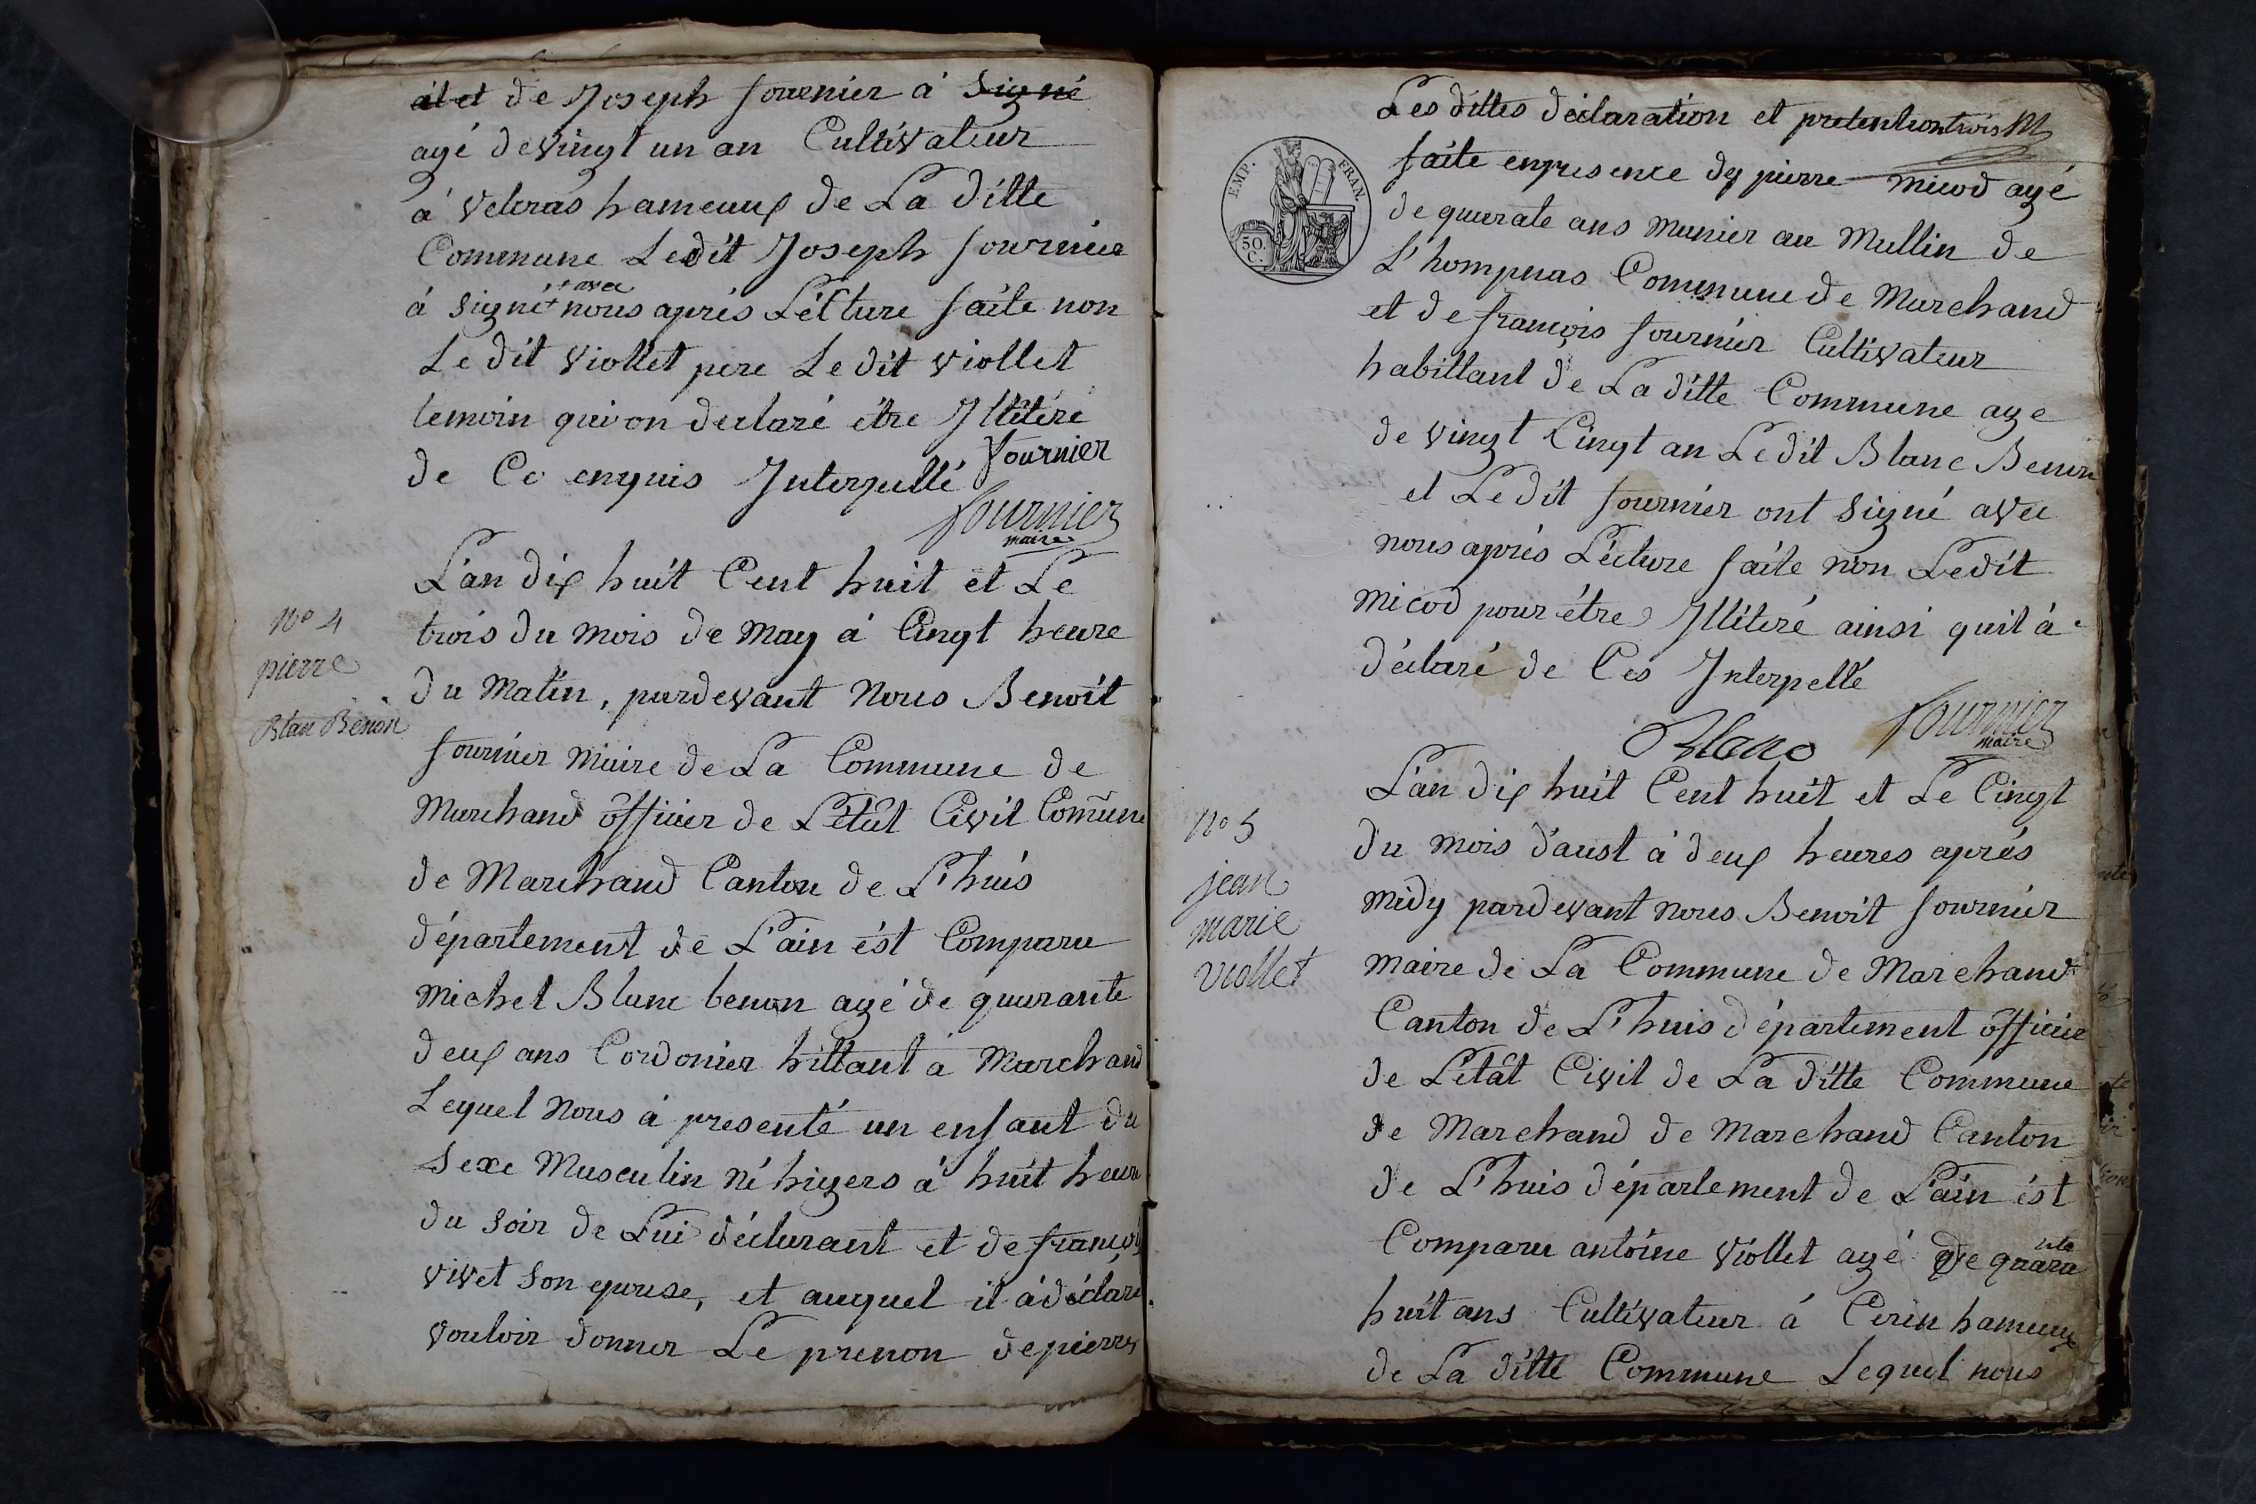 de Joseph fournier à signé
agé de vingt un an Cultivateur
à veleras hameaux de La ditte
Commune Ledit Joseph fournier
+ avec
à signé + nous aprés Lécture faite non
Le dit viollet pere Le dit viollet
temoin qui on declaré étre Illitéré
de Ce enquis Interpellé
fournier
fournier
maire
L'an dix huit Cent huit et Le
trois du mois de may à Cinqt heure
du Matin, pardevant Nous Benoît
fournier Maire de La Commune de
Marchand officier de L'état Civil Comune
de Marchand Canton de L'huis
département de L'ain ést Comparu
Michel Blanc benon agé de quarante
deux ans Cordonier hittant à Marchand
Lequel Nous à presenté un enfant du
Sexe Masculin né hiyers à huit heure
du soir de Lui déclarant et de françoise
vivet son epouse, et auquel il à déclaré
vouloir donner Le prenon de pierre
No 4
pierre
Blan Benon
Les dittes déclaration et pretention
faite en presence de pierre micod agé
de quarate ans munier au Mullin de
L'hompnas Commune de Marchand
et de françois fournier Cultivateur
habittant de La ditte Commune age
de vingt Cinqt an Ledit Blanc Benon
et Ledit fournier ont signé avec
nous aprés Lécture faite non Ledit
micod pour étre Illitéré ainsi quil à
déclaré de Ces Interpellé
Blanc
fournier
maire
EMP. FRAN.
50.
C.
L'an dix huit Cent huit et Le Cinqt
du mois d'aust à deux heures aprés
midy pardevant nous Benoit fournier
maire de La Commune de Marchand
Canton de L'huis département officier
de L'état Civil de La ditte Commune
de Marchand de Marchand Canton
de L'huis département de L'ain ést
Comparu antoine viollet agé de quara
nte
huit ans Cultivateur à Cerin hameaux
de La ditte Commune Lequel nous
No 5
jean
marie
viollet